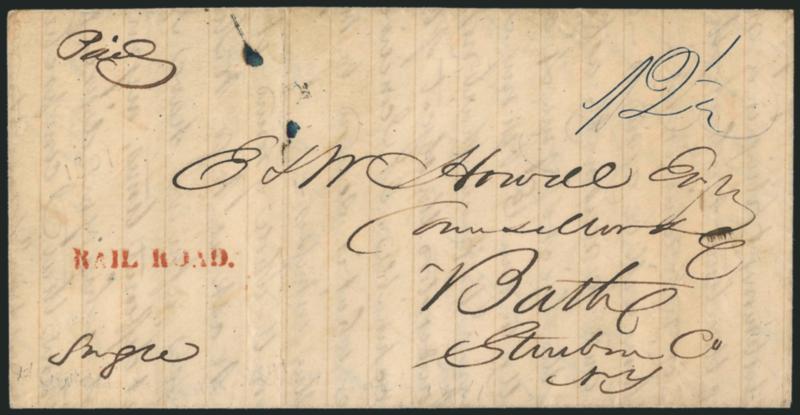 Paid
12 1/2
E & W Howell Esqrs
Counsellors &c
RAIL ROAD.
Bath
Steuben Co
NY
Single